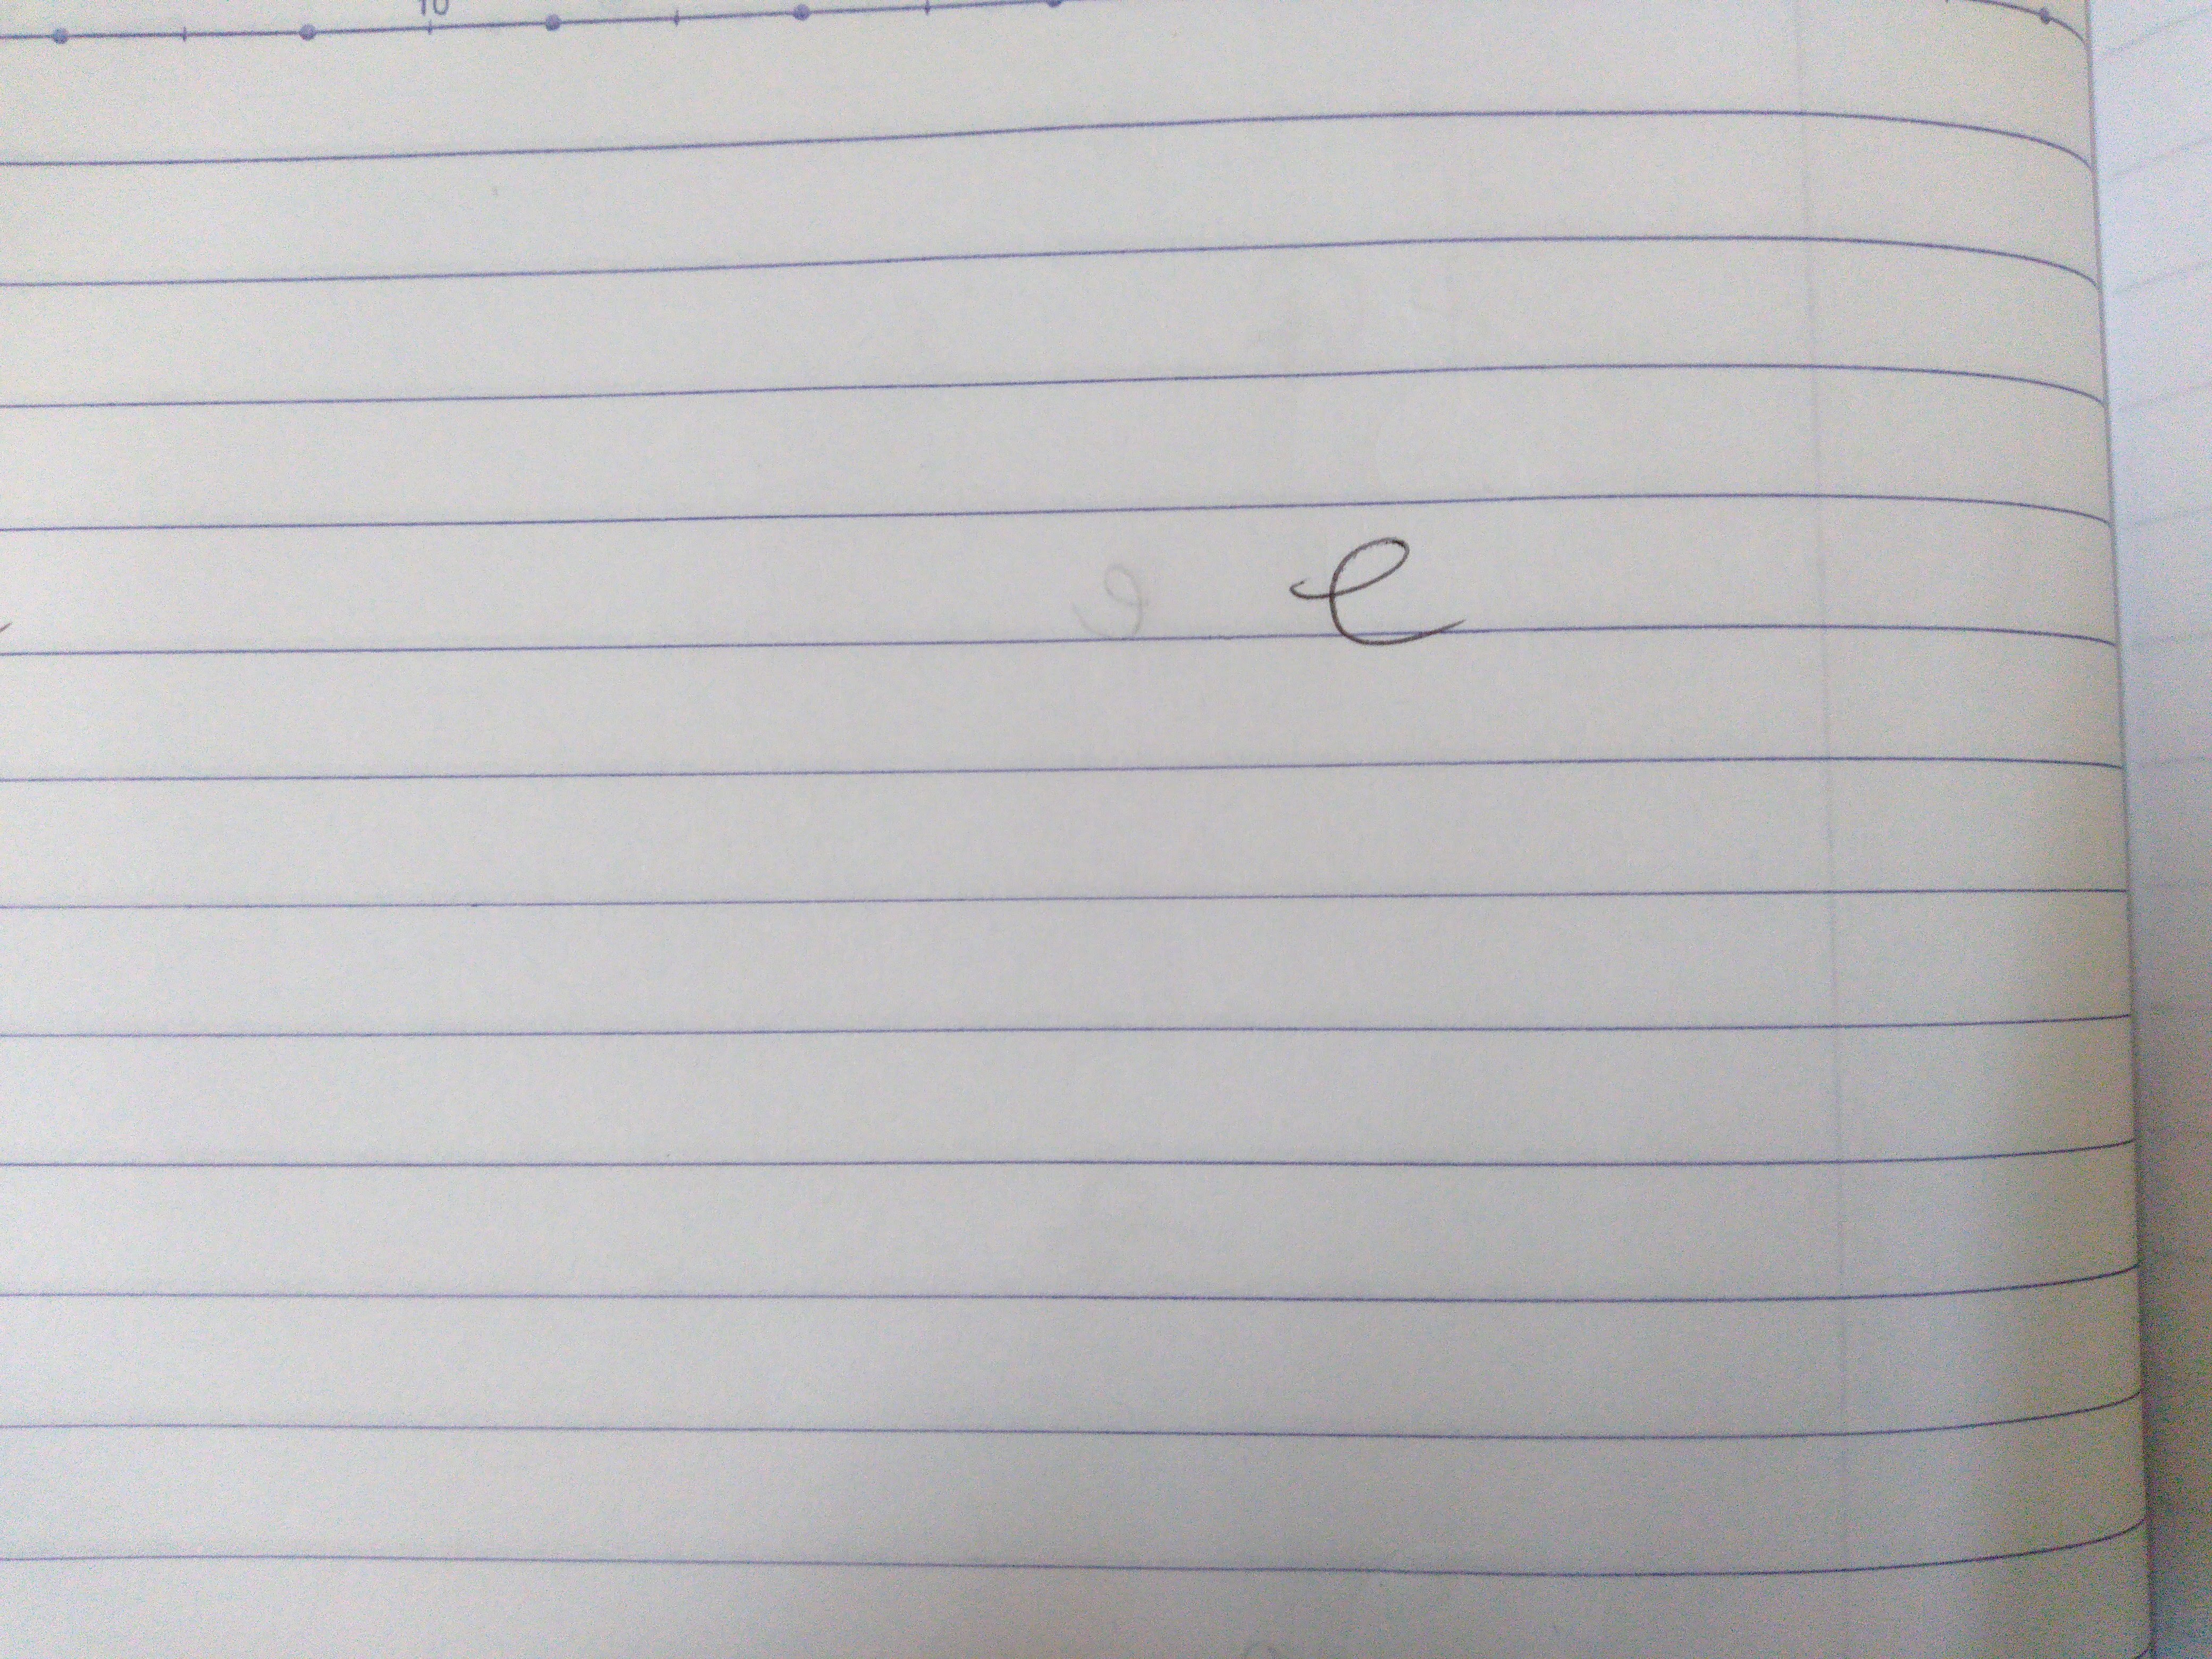 10
e